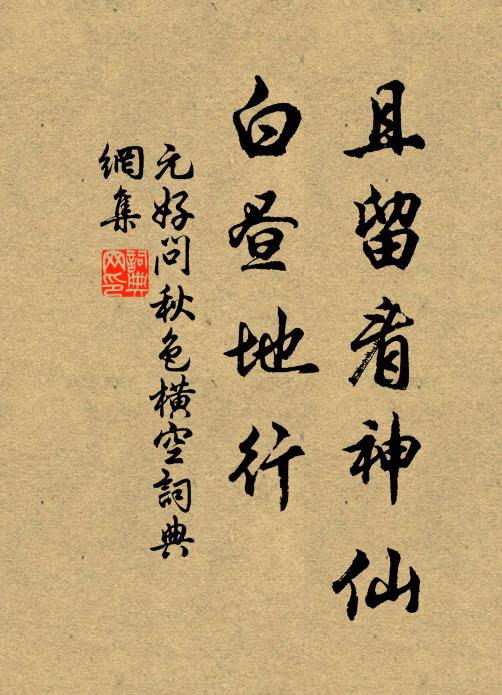 且留看神仙
白昼地行
元好问秋色橫空詞典
網集
詞典网印